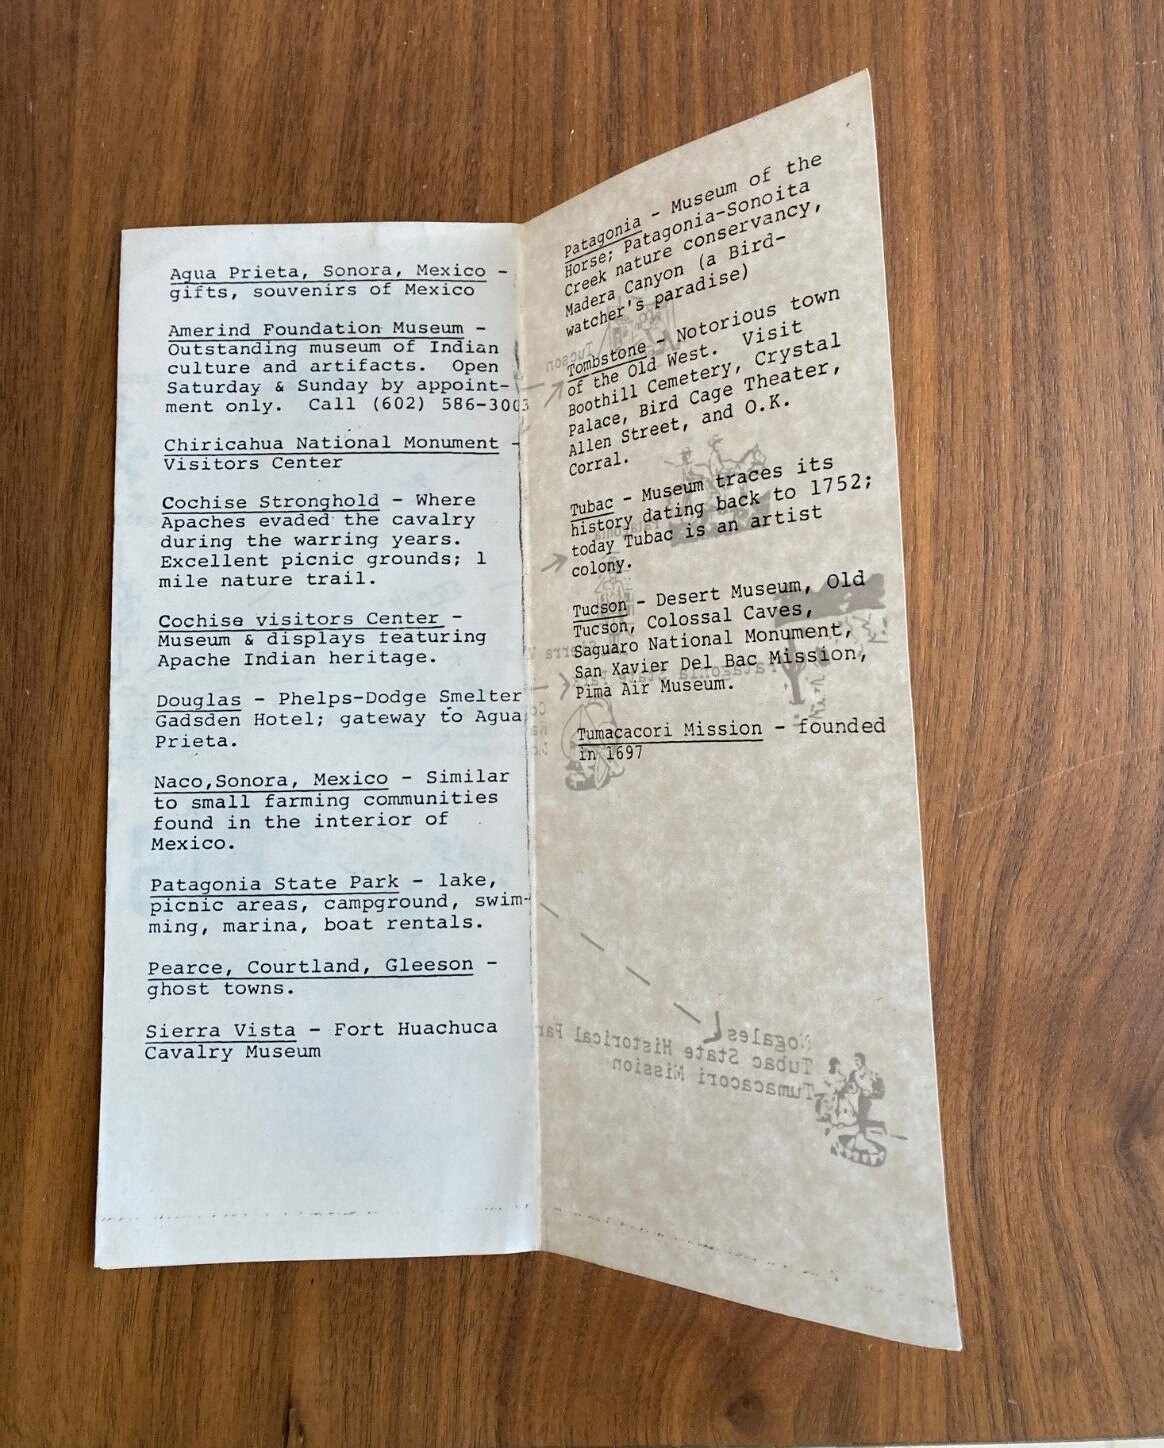 Agua Prieta, Sonora, Mexico -
gifts, souvenirs of Mexico
Amerind Foundation Museum -
Outstanding museum of Indian
culture and artifacts. Open
Saturday & Sunday by appoint-
ment only. Call (602) 586-3003
Chiricahua National Monument -
Visitors Center
Cochise Stronghold - Where
Apaches evaded the cavalry
during the warring years.
Excellent picnic grounds; 1
mile nature trail.
Cochise visitors Center -
Museum & displays featuring
Apache Indian heritage.
Douglas - Phelps-Dodge Smelter
Gadsden Hotel; gateway to Agua
Prieta.
Naco,Sonora, Mexico - Similar
to small farming communities
found in the interior of
Mexico.
Patagonia State Park - lake,
picnic areas, campground, swim-
ming, marina, boat rentals.
Pearce, Courtland, Gleeson -
ghost towns.
Sierra Vista - Fort Huachuca
Cavalry Museum
Patagonia - Museum of the
Horse; Patagonia-Sonoita
Creek nature conservancy,
Madera Canyon (a Bird-
watcher's paradise)
Tombstone - Notorious town
of the Old West. Visit
Boothill Cemetery, Crystal
Palace, Bird Cage Theater,
Allen Street, and O.K.
Corral.
Tubac - Museum traces its
history dating back to 1752;
today Tubac is an artist
colony.
Tucson - Desert Museum, Old
Tucson, Colossal Caves,
Saguaro National Monument,
San Xavier Del Bac Mission,
Pima Air Museum.
Tumacacori Mission - founded
in 1697
Tucson
Patagonia
Patagonia State Park
Nogales
Tubac State Historical
Tumacacori Mission